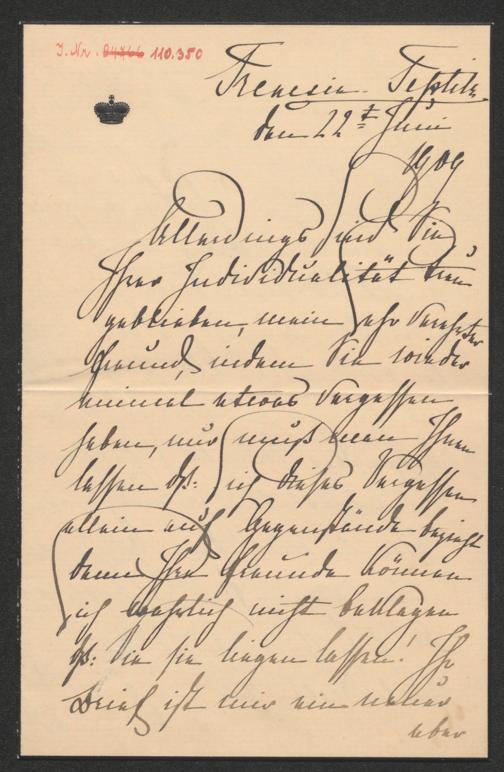 I. Nr. 84766 110.350
Trencsin-Teplitz
den 22t Juni
1909
Allerdings sind Sie
Ihrer Individualität treu
geblieben, mein sehr verehrter
Freund, indem Sie wieder
einmal etwas vergessen
haben, nur muß man Ihnen
lassen dß: sich dieses Vergessen
allein auf Gegenstände bezieht
denn Ihre Freunde können
sich wahrlich nicht beklagen
dß: Sie sie liegen lassen! Ihr
Brief ist mir ein neuer
aber